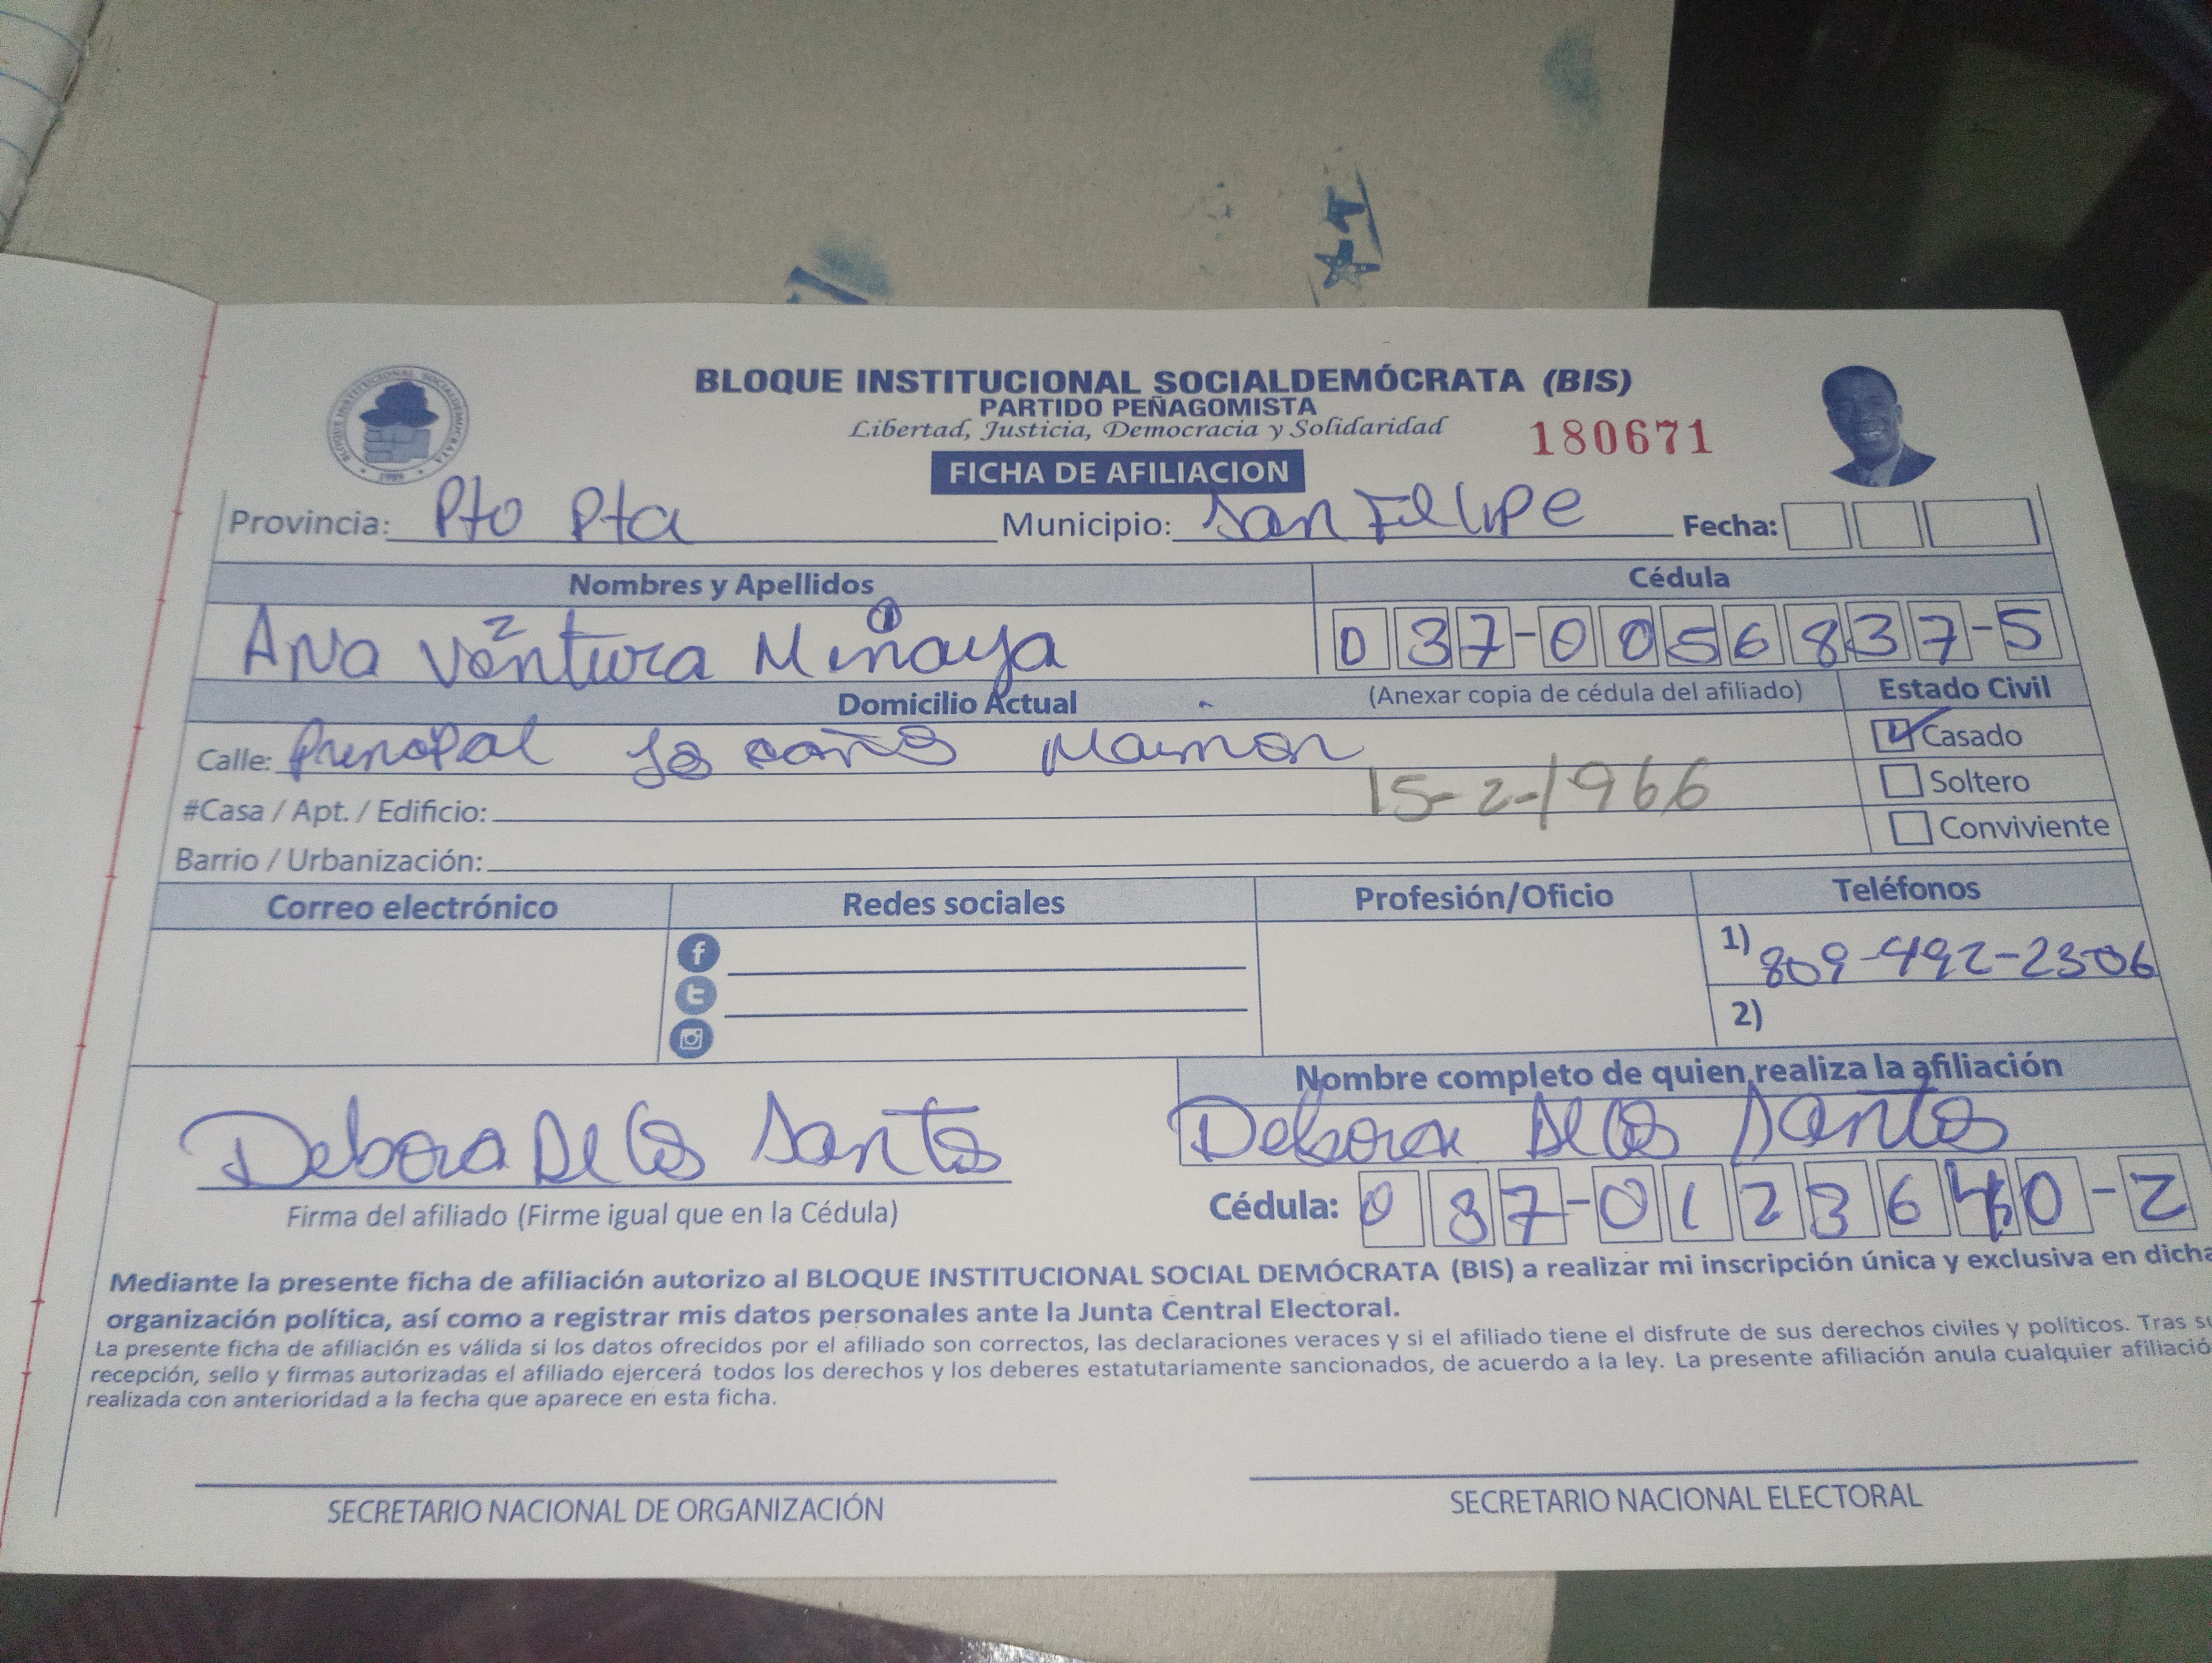 BLOQUE INSTITUCIONAL SOCIALDEMÓCRATA (BIS)
PARTIDO PEÑAGOMISTA
Libertad, Justicia, Democracia y Solidaridad
180671
FICHA DE AFILIACION
Provincia: Pto Pta Municipio: San Felipe Fecha:
Nombres y Apellidos Cédula
2 1
Ana Ventura Minaya 037-0056837-5
Domicilio Actual (Anexar copia de cédula del afiliado) Estado Civil
Calle: Maimon Casado
15-2-1966
#Casa / Apt. / Edificio: Soltero
Barrio / Urbanización: Conviviente
Correo electrónico Redes sociales Profesión/Oficio Teléfonos
1) 809-492-2306
2)
Nombre completo de quien realiza la afiliación
Debora De los Santos Debora De los Santos
Firma del afiliado (Firme igual que en la Cédula) Cédula: 037-0123640-2
Mediante la presente ficha de afiliación autorizo al BLOQUE INSTITUCIONAL SOCIAL DEMÓCRATA (BIS) a realizar mi inscripción única y exclusiva en dicha
organización política, así como a registrar mis datos personales ante la Junta Central Electoral.
La presente ficha de afiliación es válida si los datos ofrecidos por el afiliado son correctos, las declaraciones veraces y si el afiliado tiene el disfrute de sus derechos civiles y políticos. Tras su
recepción, sello y firmas autorizadas el afiliado ejercerá todos los derechos y los deberes estatutariamente sancionados, de acuerdo a la ley. La presente afiliación anula cualquier afiliació
realizada con anterioridad a la fecha que aparece en esta ficha.
SECRETARIO NACIONAL DE ORGANIZACIÓN SECRETARIO NACIONAL ELECTORAL